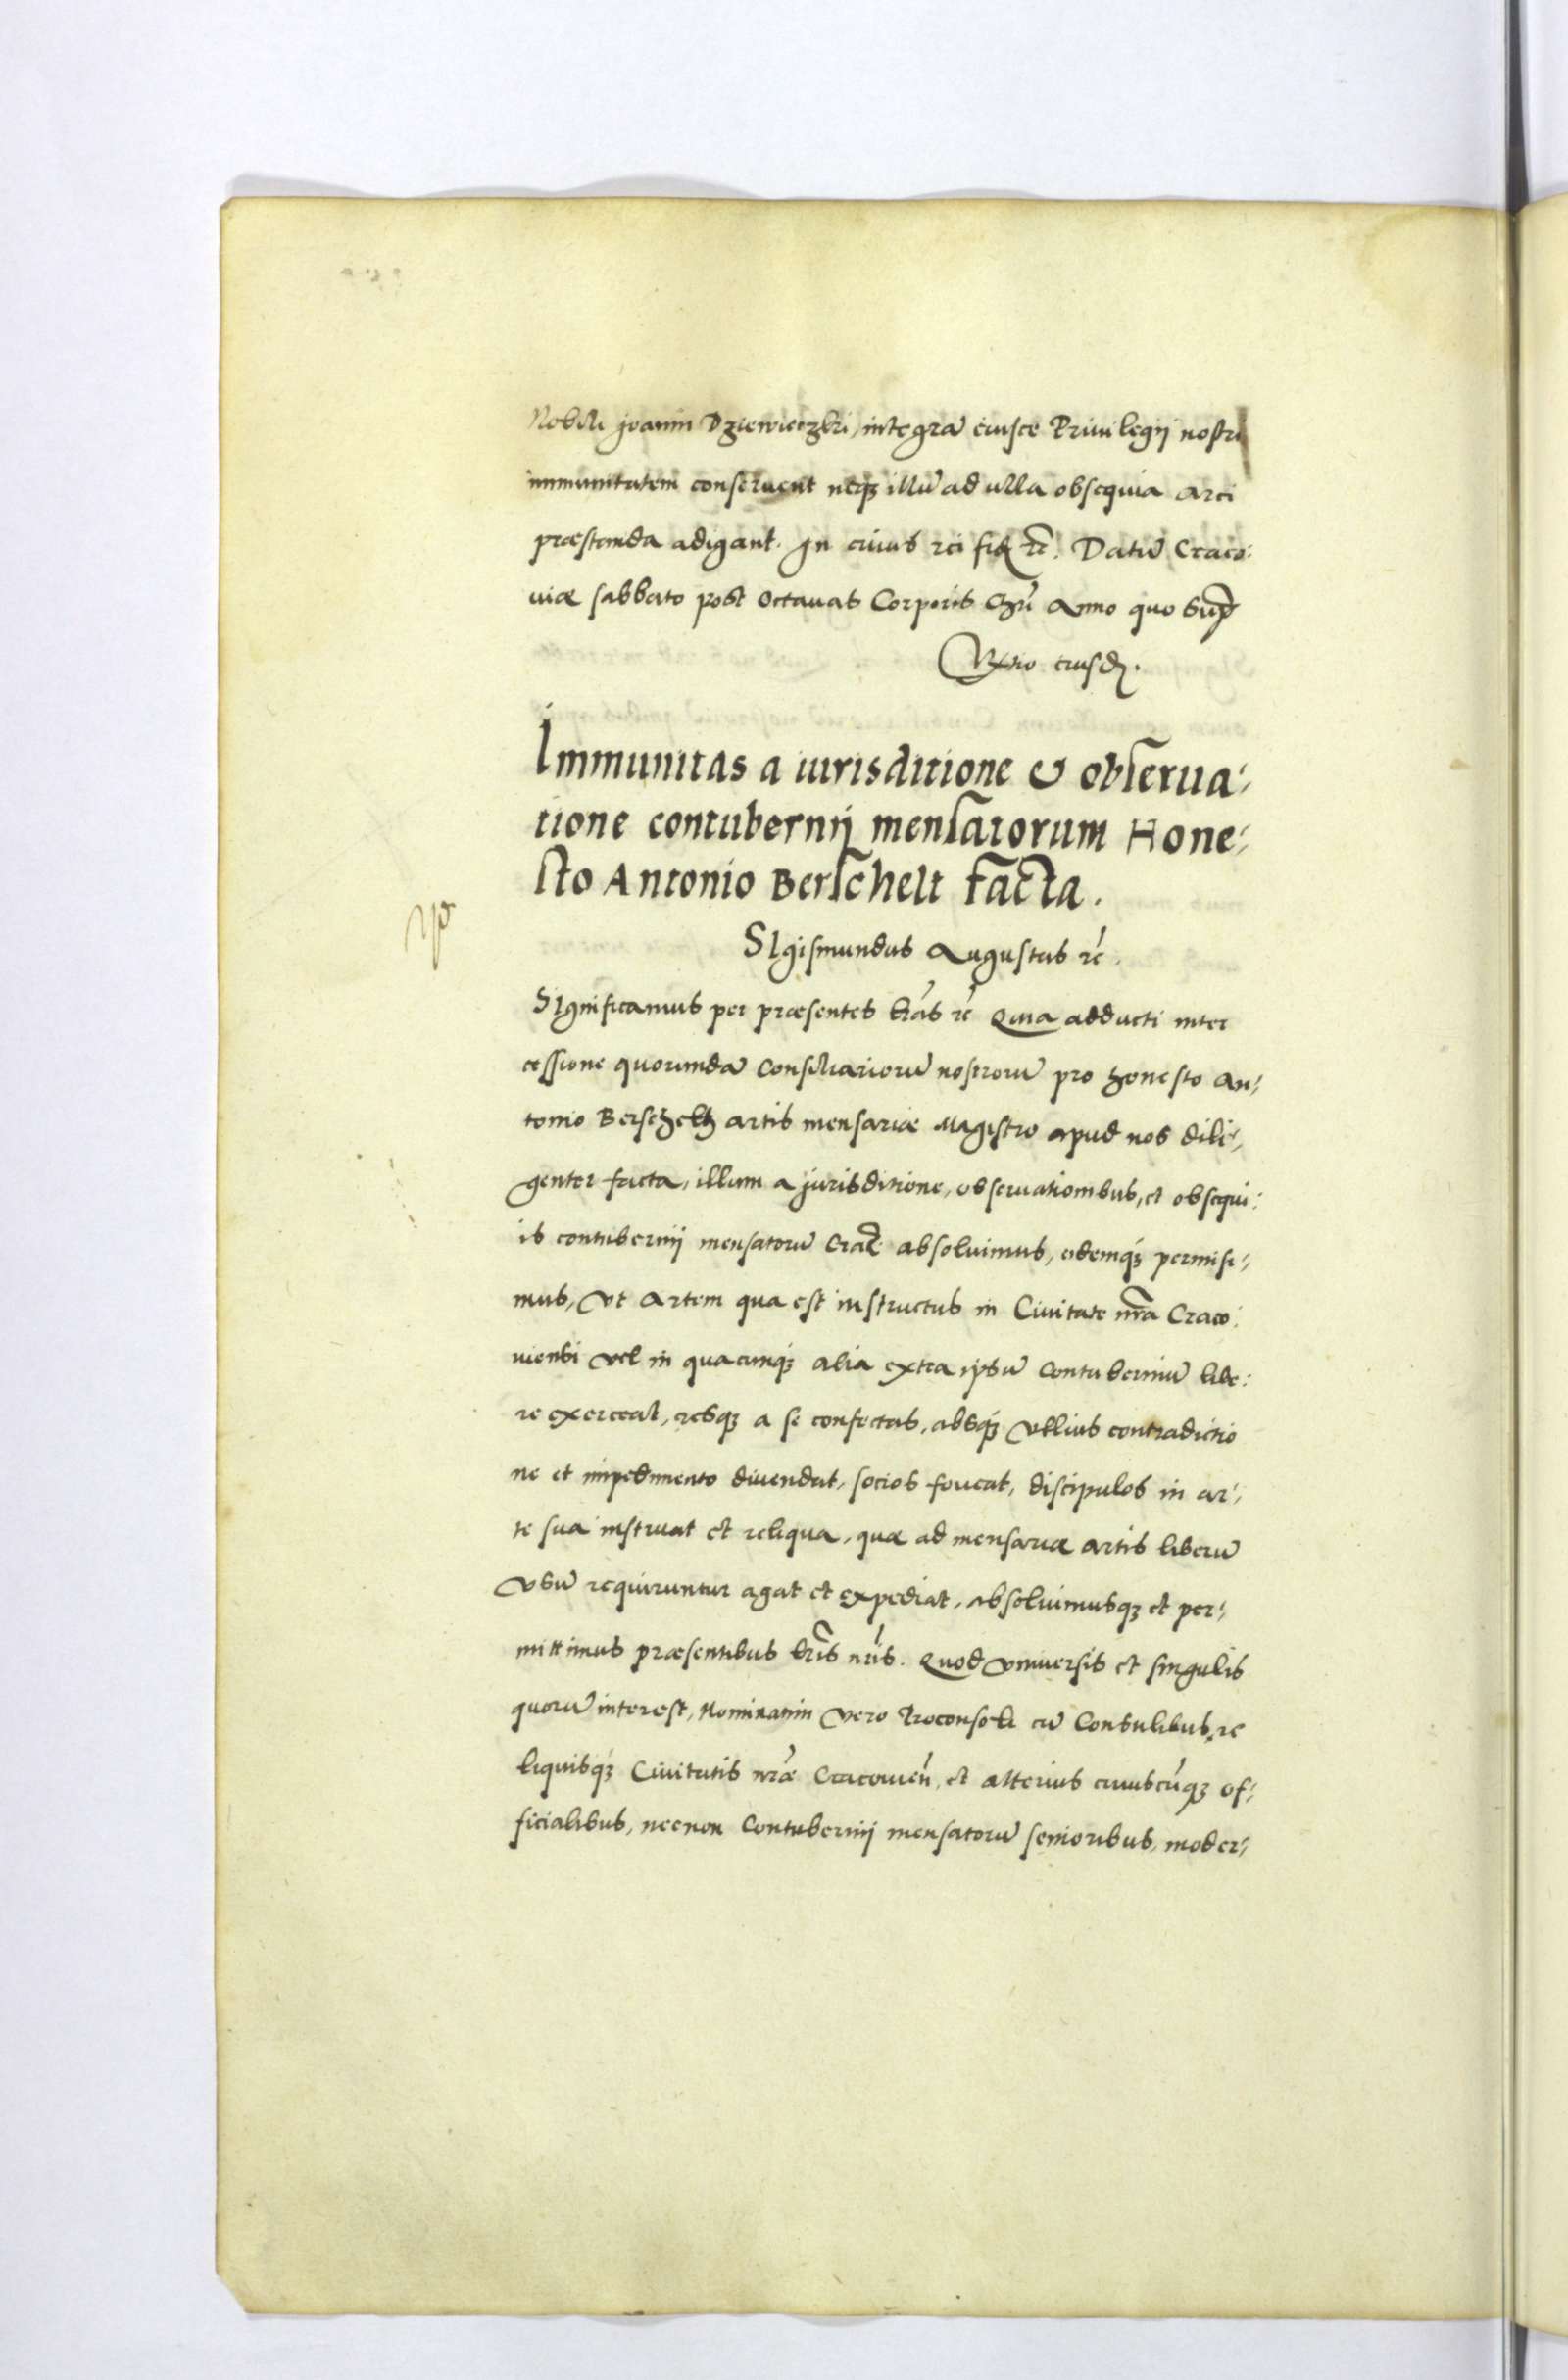 Nobili Joanni Dziewieczki, integrã eiusce Priuilegij nostri
immunitatem conseruent neqꝫ illũ ad ulla obsequia arci
præstanda adigant. Jn cuius rei fid ꝛc̃. Datũ Craco:
uiæ sabbato post octauas Corporis Chrĩ Anno quo sup̃
eiusdꝫ.
Immunitas a iurisditione & obserua-
tione contubernij mensatorum Hone-
sto Antonio Berschelt facta.
SIgismundus Augustus ꝛc̃.
SIgnificamus per præsentes lr̃as ꝛc̃ Quia adducti inter
cessione quorundã Consiliariorũ nostrorũ pro honesto An-
tonio Berscheltz artis mensariæ Magistro apud nos dili-
genter facta, illum a jurisditione, obseruationibus, et obsequi:
is contubernij mensatorũ Crac̃ absoluimus, eidemqꝫ permisi-
mus, vt artem qua est instructus in Ciuitate nr̃a Craco:
uiensi vel in quacunqꝫ alia extra ipsũ contuberniũ libe:
re exerceat, resqꝫ a se confectas, absqꝫ vllius contradictio
ne et impedimento diuendat, socios foueat, discipulos in ar-
te sua instruat et reliqua, quæ ad mensariæ artis liberũ
vsũ requiruntur agat et expediat, absoluimusqꝫ et per-
mittimus præsentibus lr̃is nr̃is. Quod vniuersis et singulis
quorũ interest, Nominatim vero Proconsoli cũ Consulibus, re
liquisqꝫ Ciuitatis nr̃æ Cracouien̄, et alterius cuiuscũqꝫ of-
ficialibus, necnon Contubernij mensatorũ senioribus, moder-